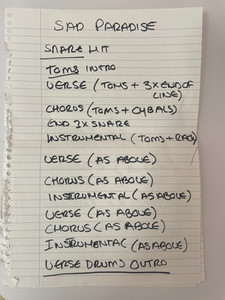 SAD PARADISE
SNARE HIT
TOMS INTRO
VERSE (TOMS + 3X END OF
LINE)
CHORUS (TOMS + CYMBALS)
END 3X SNARE
INSTRUMENTAL (TOMS +
VERSE (AS ABOVE)
CHORUS (AS ABOVE)
INSTRUMENTAL (AS ABOVE)
VERSE (AS ABOVE)
CHORUS (AS ABOVE)
INSTRUMENTAL (AS ABOVE)
VERSE DRUMS OUTRO